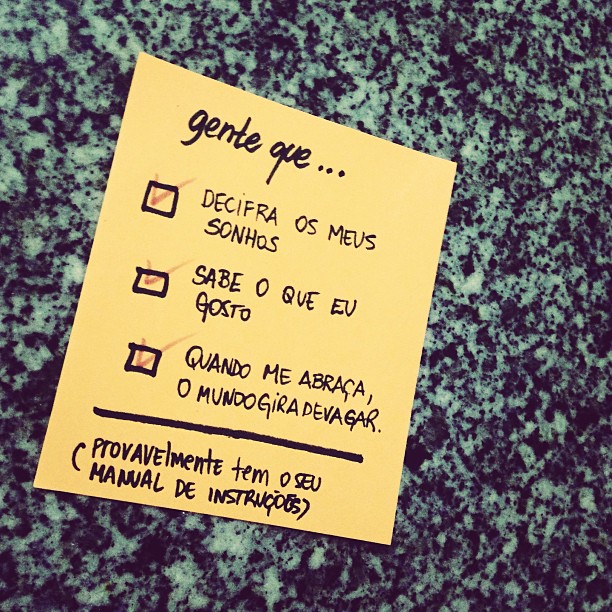 gente que...
DECIFRA OS MEUS
SONHOS
SABE O QUE EU
GOSTO
QUANDO ME ABRAÇA,
O MUNDO GIRA DEVAGAR.
(PROVAVELmente tem o SEU
MANUAL DE INSTRUÇÕES)